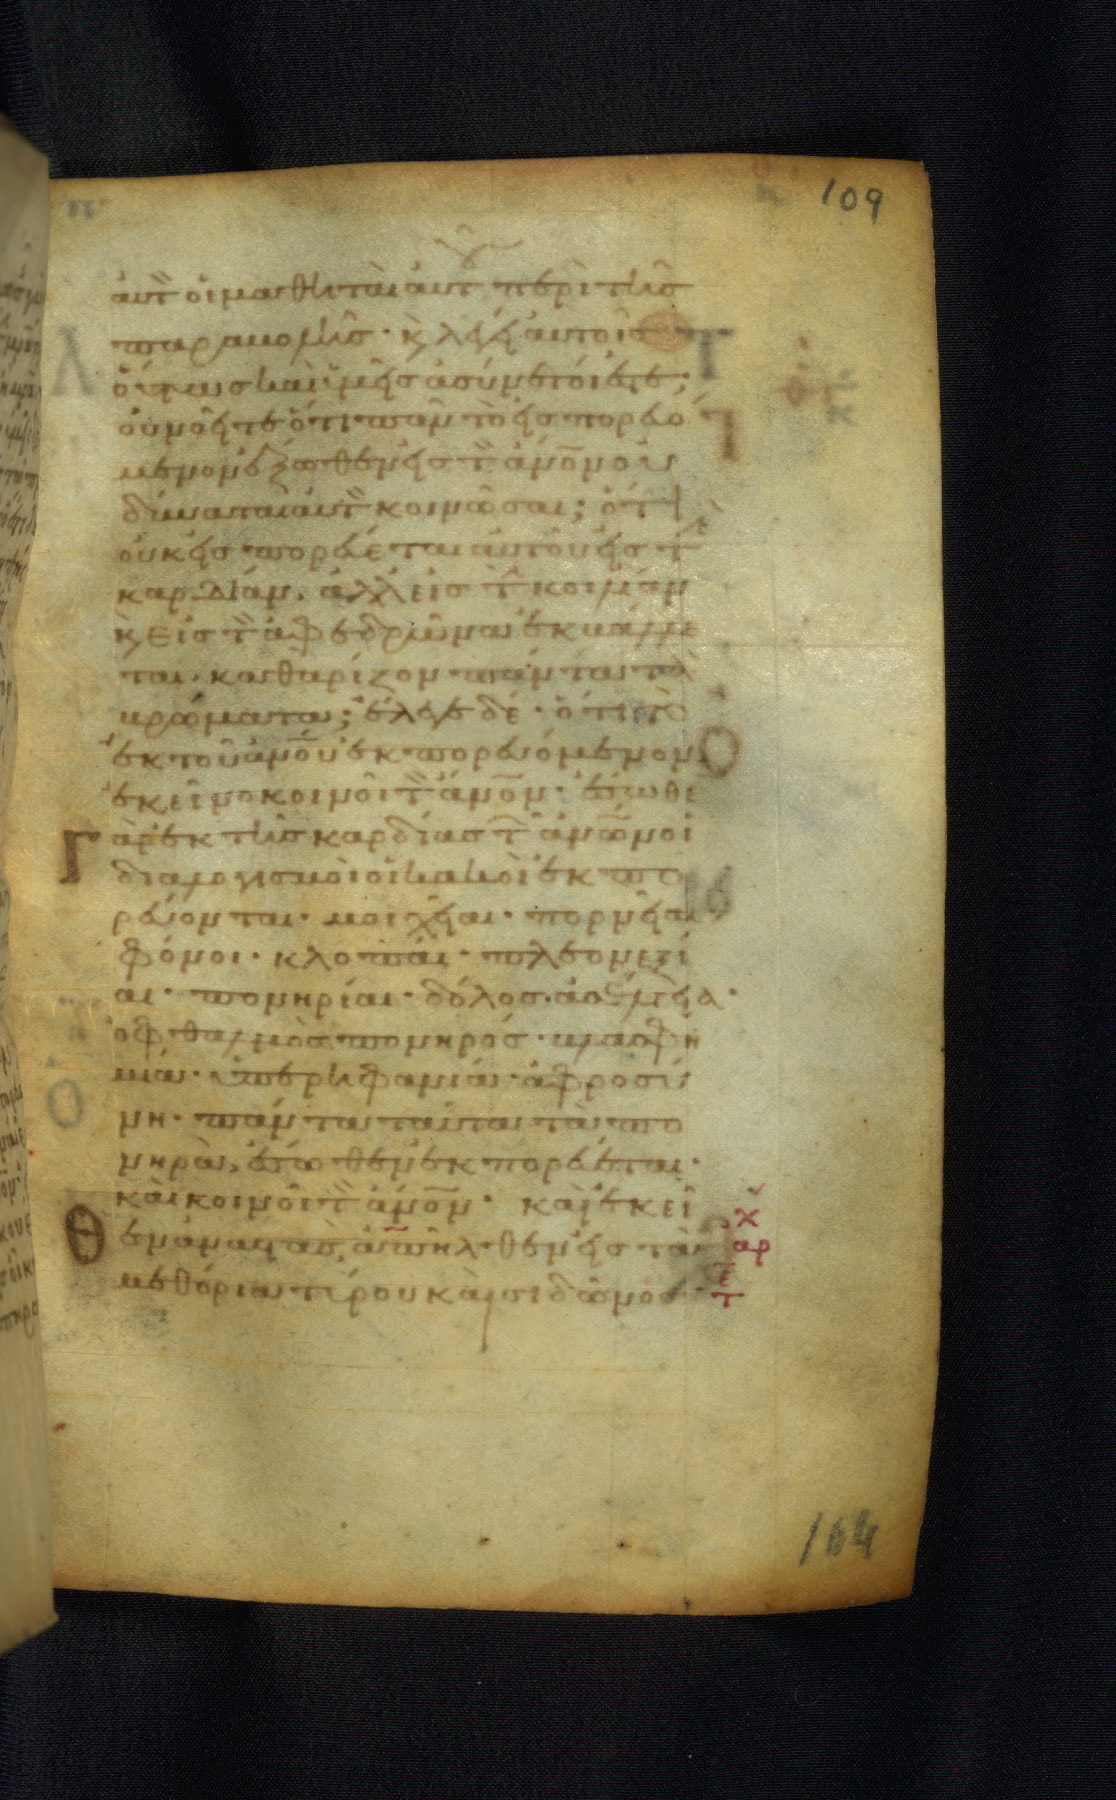 109
αυτ οι μαθηται αυτ περι της
παραβολης · κ̀ λέγει αυτοις
ούτως και υμεις ασύνετοι εστε;
ου νοειτε ότι παν το εισπορευό
μενον έξωθεν εις τ̀ ανον ου
δύναται αυτ κοινωσαι; ότι
ουκ εισπορεύεται αυτου εις τ̀
καρδίαν. αλλ εις τ̀ κοιλίαν
κ̀ εις τ̀ αφεδρωνα εκπορεύε
ται. καθαρίζον πάντα τα
βρώματα; έλεγε δέ · ότι το
εκ του ανου εκπορευόμενον
εκεινο κοινοι τ̀ ανον · έσωθε
γαρ εκ της καρδίας τ̀ ανων οι
διαλογισμοι οι κακοι εκπο
ρεύονται · μοιχειαι · πορνειαι
φόνοι · κλοπαι · πλεονεξί
αι · πονηρίαι · δόλος · ασέλγεια ·
οφθαλμος πονηρός · βλασφη
μία · υπερηφανία · αφροσύ
νη · πάντα ταυτα τα πο
νηρα, έσωθεν εκπορεύεται ·
και κοινοι τ̀ ανον · και εκει
θεν αναστας, απηλθεν εις τα
μεθόρια τύρου και σιδωνος ·
αρ
104